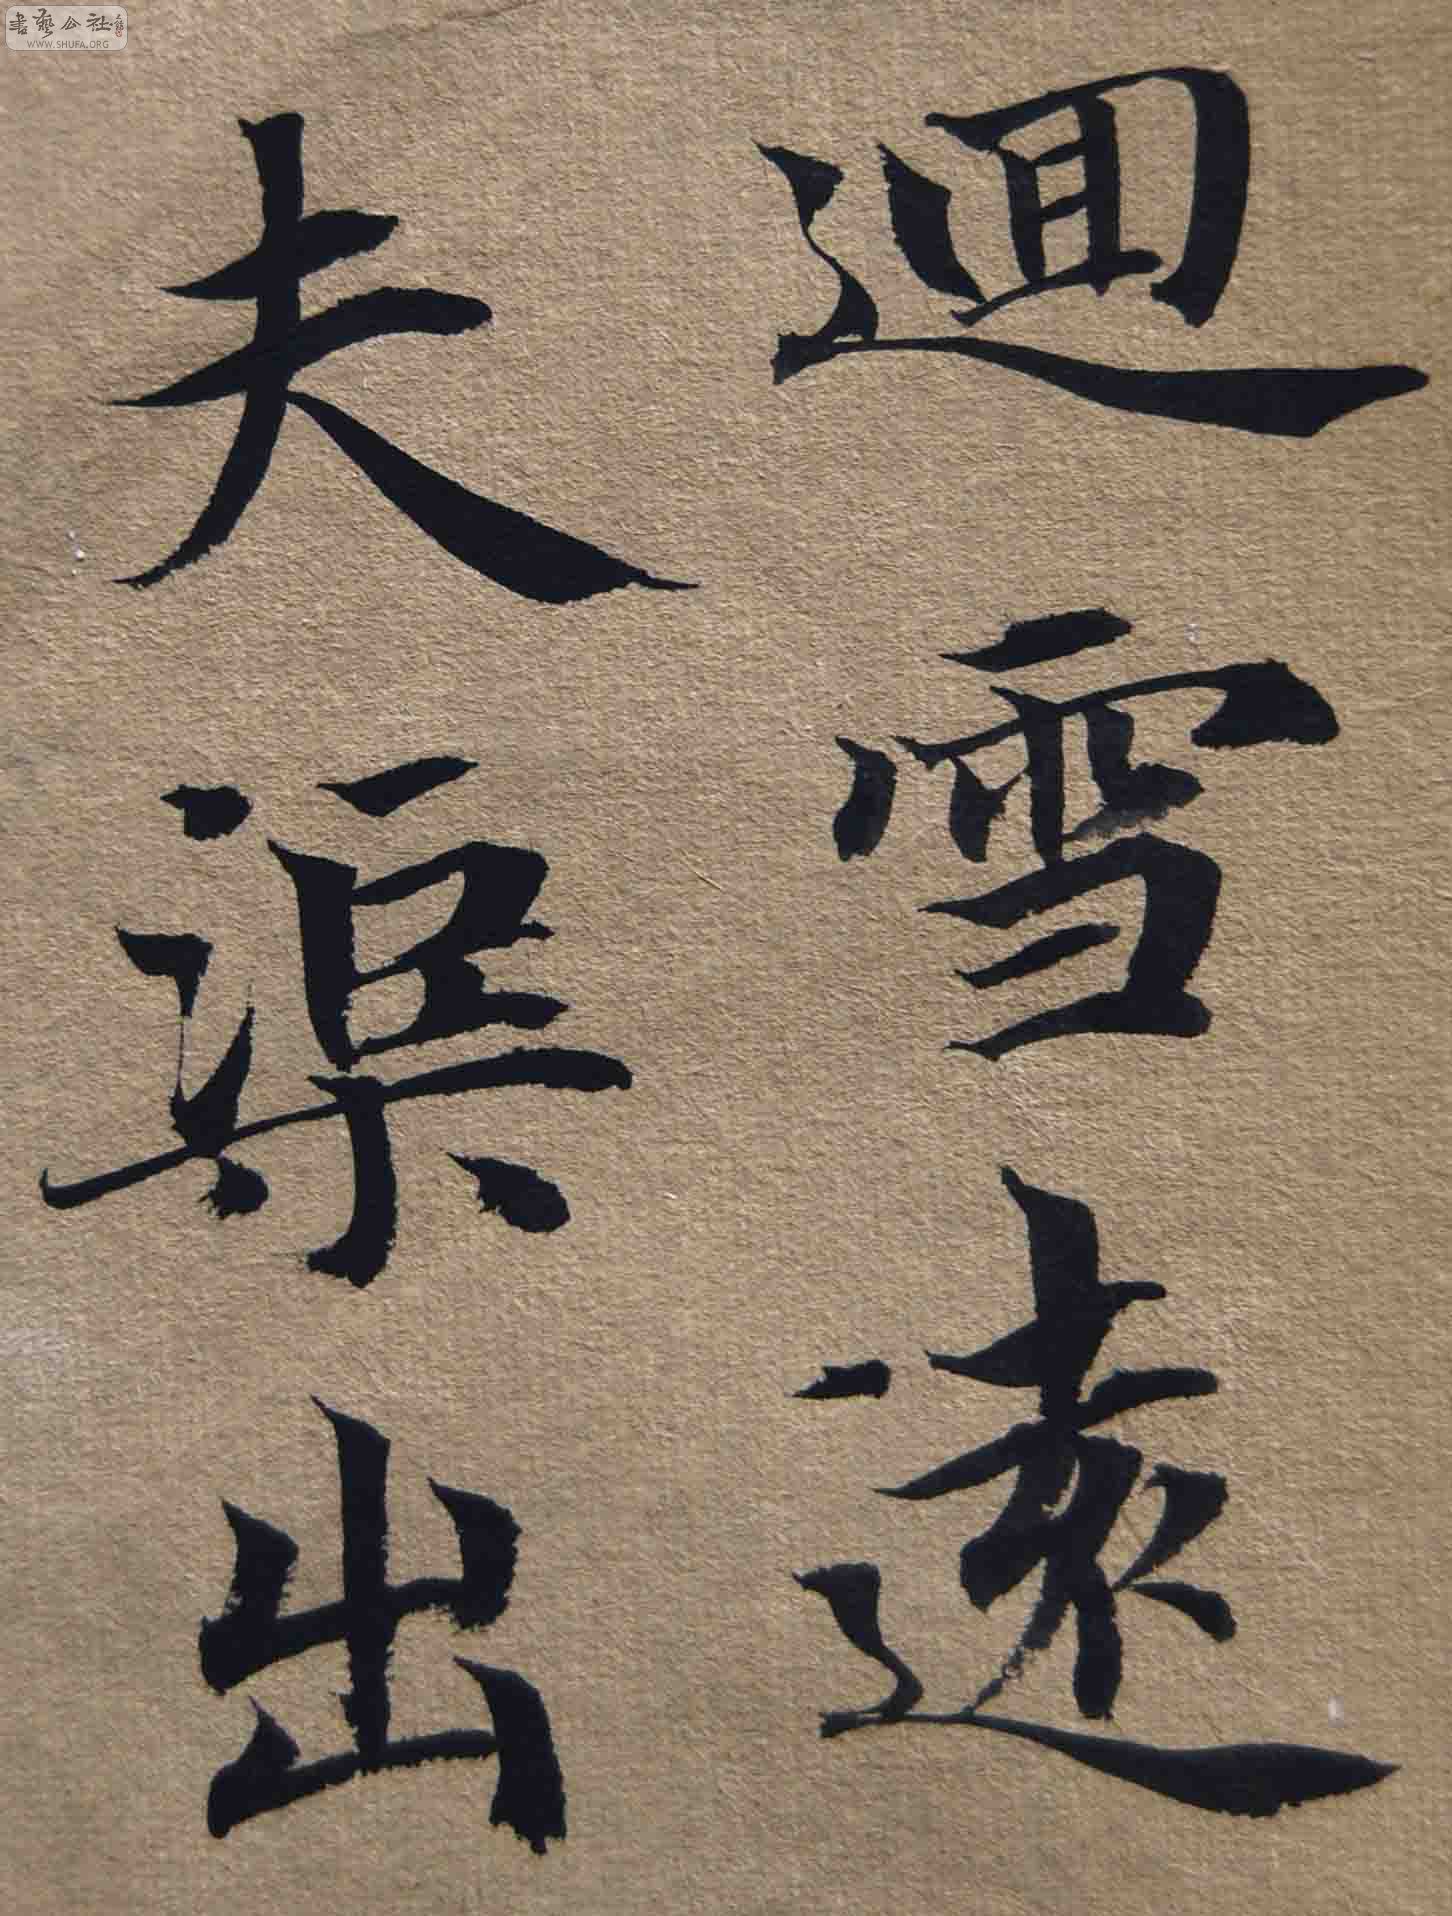 迴雪遠
夫渠出
書藝公社
WWW.SHUFA.ORG